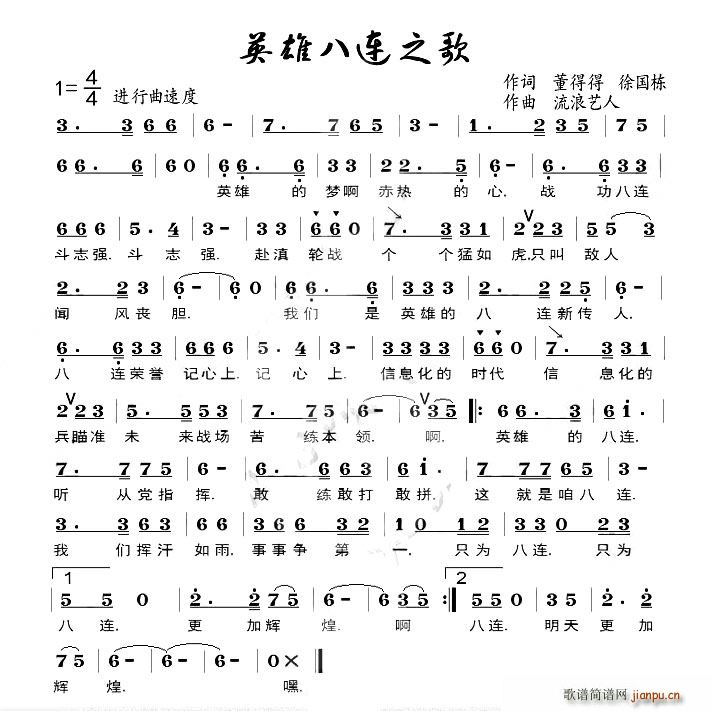 英雄八连之歌
1=4/4 进行曲速度
作词 董得得 徐国栋
作曲 流浪艺人
3. 3 6 6 | 6 - | 7. 7 6 5 | 3 - | 1. 2 3 5 | 7 5 |
6 6. 6 | 6 0 | 6 6. 6 | 3 3 | 2 2. 5 | 6 - | 6. 6 | 6 3 3 |
英雄 的 梦啊 赤热 的 心. 战 功八连
6 6 6 | 5. 4 | 3 - | 3 3 | 6 6 0 | 7. 3 3 1 | 2 2 3 | 5 5 3 |
斗志强. 斗 志 强. 赴滇 轮战 个 个猛如 虎,只叫 敌人
2. 2 3 | 6 - | 6 0 | 6 6. 6 | 3. 2 3 3 | 2. 2 2 5 | 6 - |
闻 风丧 胆. 我们 是 英雄的 八 连新传 人.
6. 6 3 3 | 6 6 6 | 5. 4 | 3 - | 3 3 3 2 | 6 6 0 | 7. 3 3 1 |
八 连荣誉 记心上. 记 心 上. 信息化的 时代 信 息化的
2 2 3 | 5. 5 5 3 | 2. 7 5 | 6 - | 6 3 5 ‖: 6 6. 3 | 6 i. |
兵瞄准 未 来战场 苦 练本 领. 啊. 英雄 的 八连.
7. 7 7 5 | 6 - | 3. 3 6 3 | 6 i. | 7. 7 6 5 | 3 - |
听 从党指 挥. 敢 练敢打 敢拼. 这 就是咱八 连.
3. 3 3 3 | 2 2 | 3 6 6 3 2 | 1 0 | 1 2 | 3 3 | 1 2 |
我 们挥汗 如雨. 事事争 第 一. 只为 八连. 只为
1 2
5 5 0 | 2. 2 7 5 | 6 - | 6 - | 6 3 5 :‖ 5 5 0 | 2. 2 2 |
八 连. 更 加辉 煌. 啊 八连. 明天 更 加
7 5 | 6 - | 6 - | 0 × ‖
辉 煌. 嘿.
歌谱简谱网
jianpu.cn